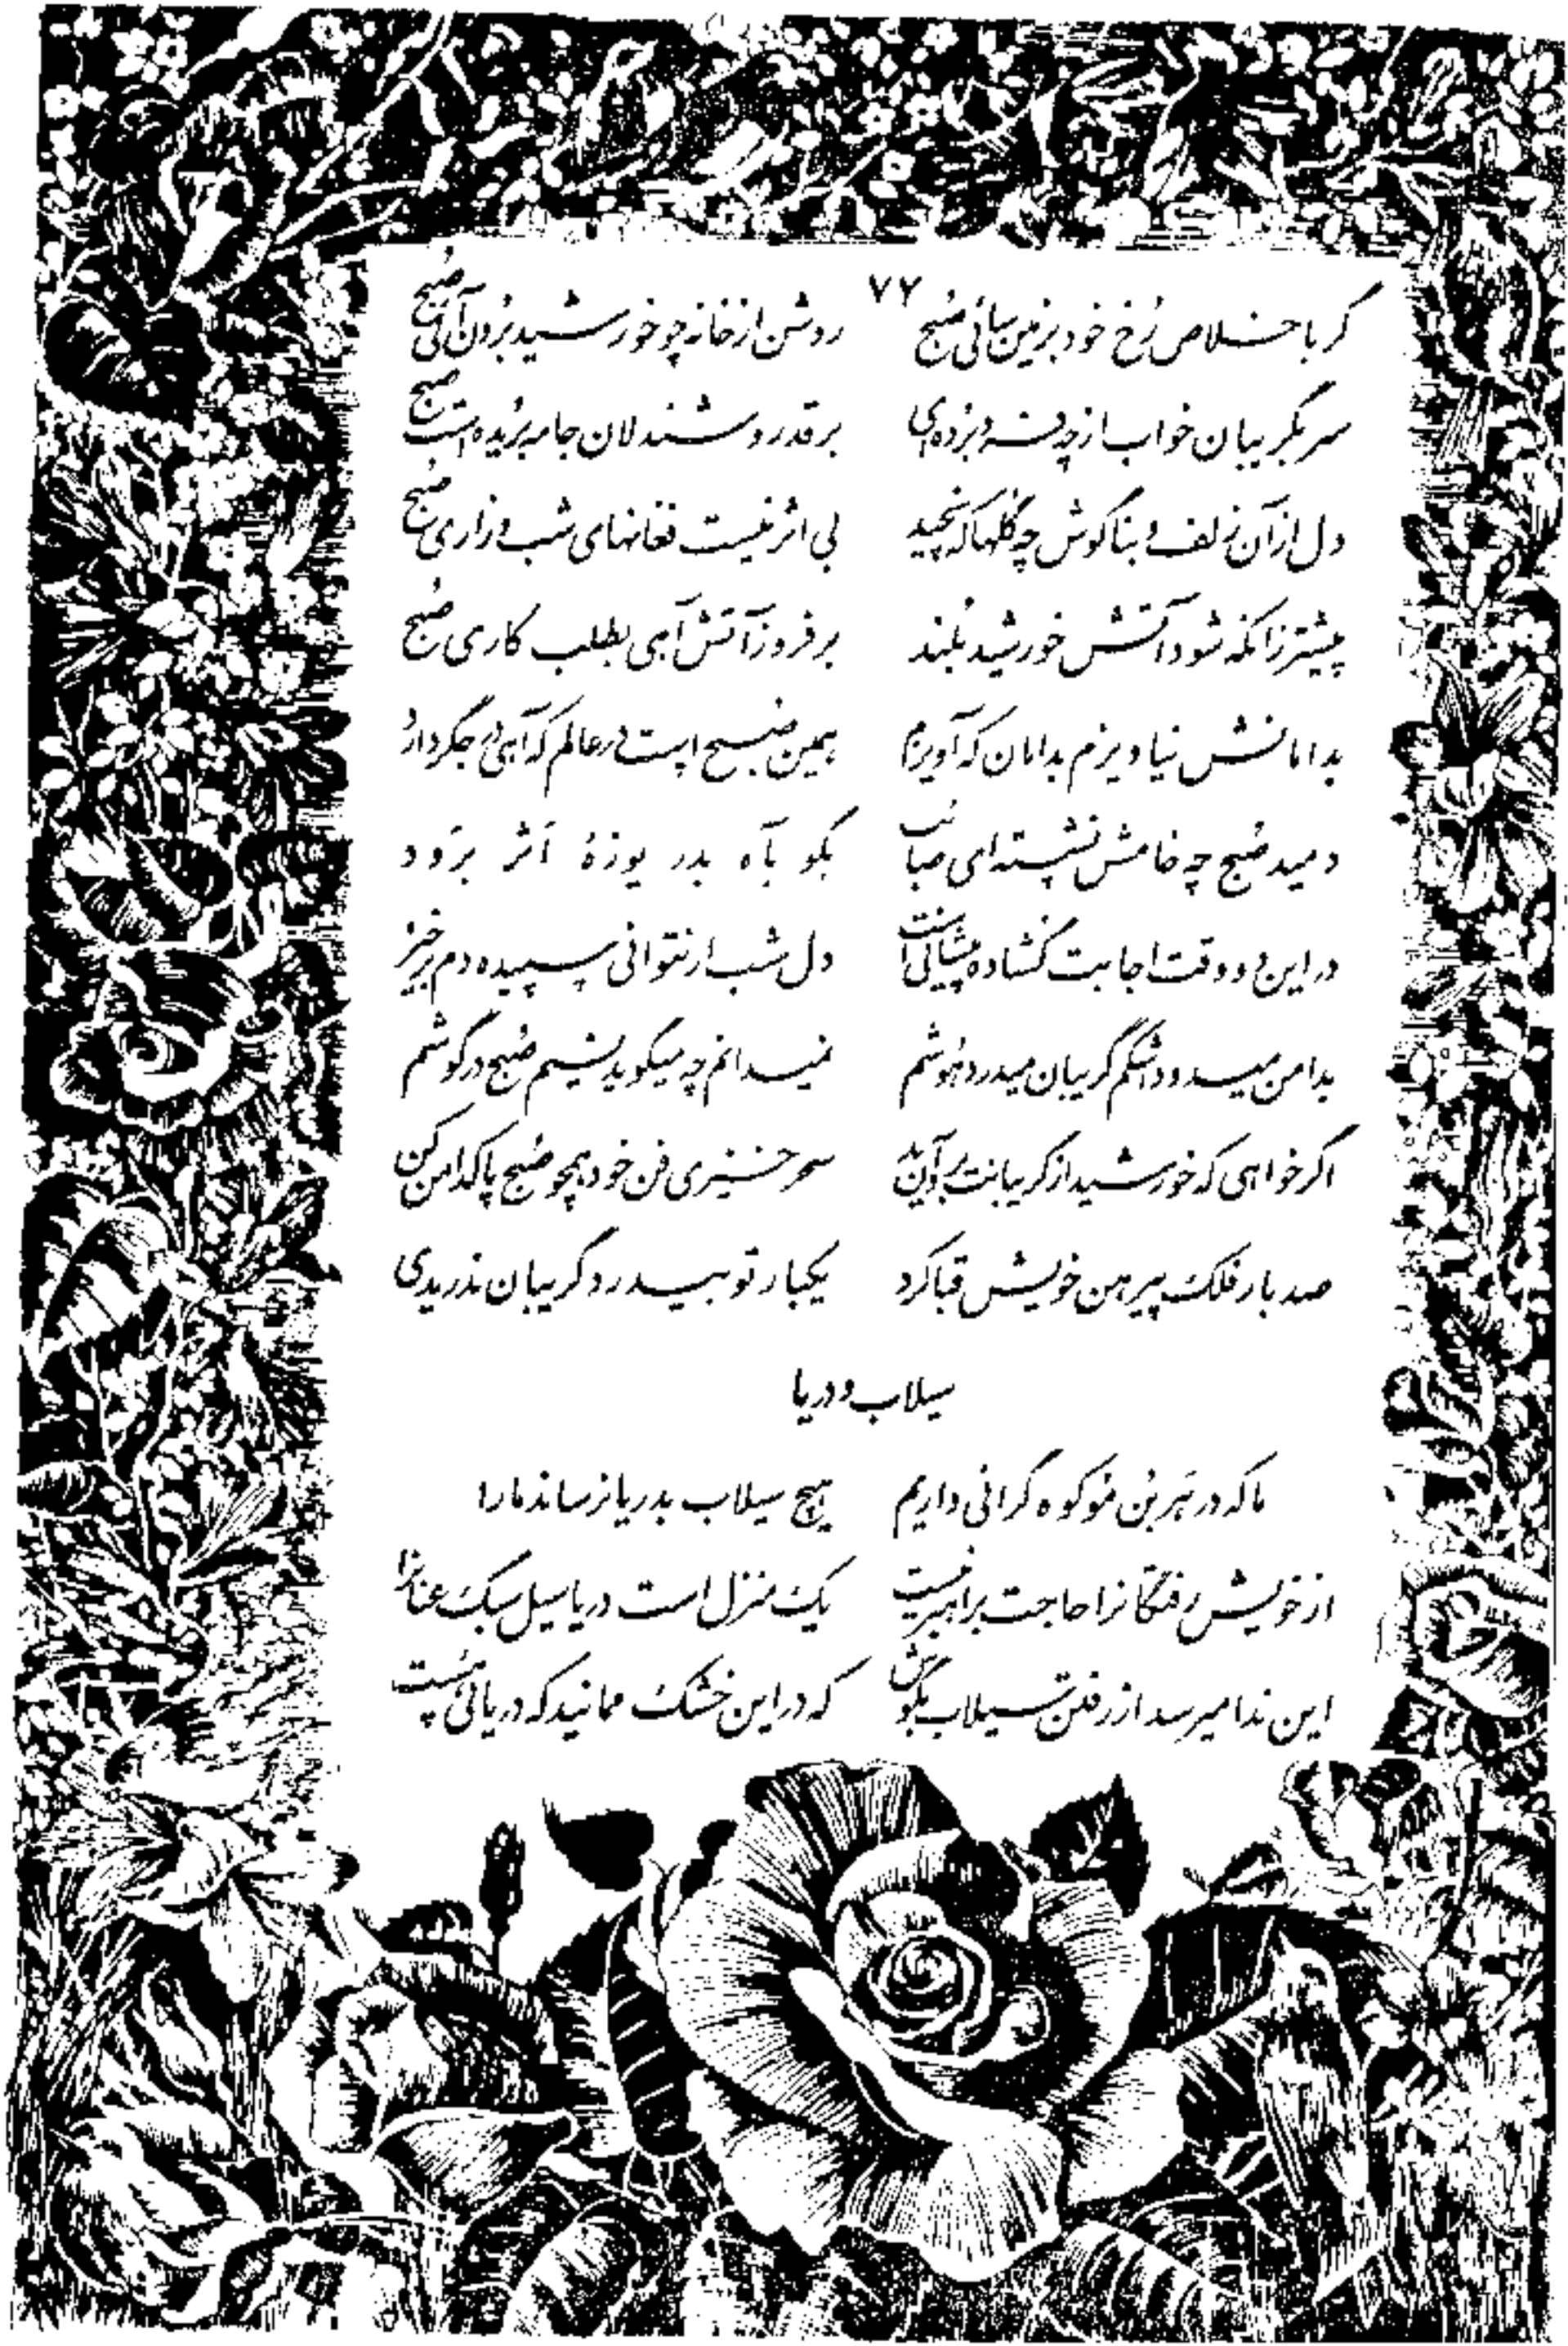 ۷۷
گر باخلاص رُخ خود بزمین سائی صُبح روشن از خانه چو خورشید بُرون آئی صُبح
سر بگریبان خواب از چه فرو بُرده‌ای بر قد روشندلان جامه بُریده است صبح
دل از آن زلف و بناگوش چه گلها که نچید بی اثر نیست فغانهای شب و زاری صُبح
پیشتر زانکه شود آتش خورشید بُلند برفروز آتش آهی بطلب کاری صُبح
بدامانش نیاویزم بدامان که آویزم همین صبح است در عالم که آهی در جگر دارد
دمید صُبح چه خامش نشسته‌ای صائب بگو بآه بدریوزهٔ اَثر برَود
در این دو وقت اجابت گشاده پیشانی است دل شب ار نتوانی سپیده دم برخیز
بدامن میدود اشکم گریبان میدرد هُوشم نمیدانم چه میگوید نسیم صُبح در گوشم
اگر خواهی که خورشید از گریبانت برآید سحرخیزی فن خود همچو صُبح پاکدامن کن
صد بار فلک پیرهن خویش قبا کرد یکبار تو بیدرد گریبان ندریدی
سیلاب و دریا
ما که در هَر بُن مُو کوه گرانی داریم هیچ سیلاب بدریا نرساند ما را
از خویش رفتگانرا حاجت براهبر نیست یک منزل است دریا سیل سبک عنانرا
این ندا میرسد از رفتن سیلاب بگوش که در این خشک ممانید که دریائی هست